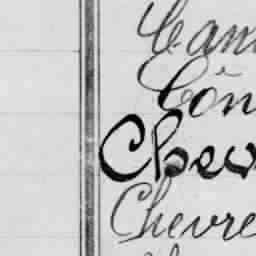 Cam
Côn
Chev
Chevre